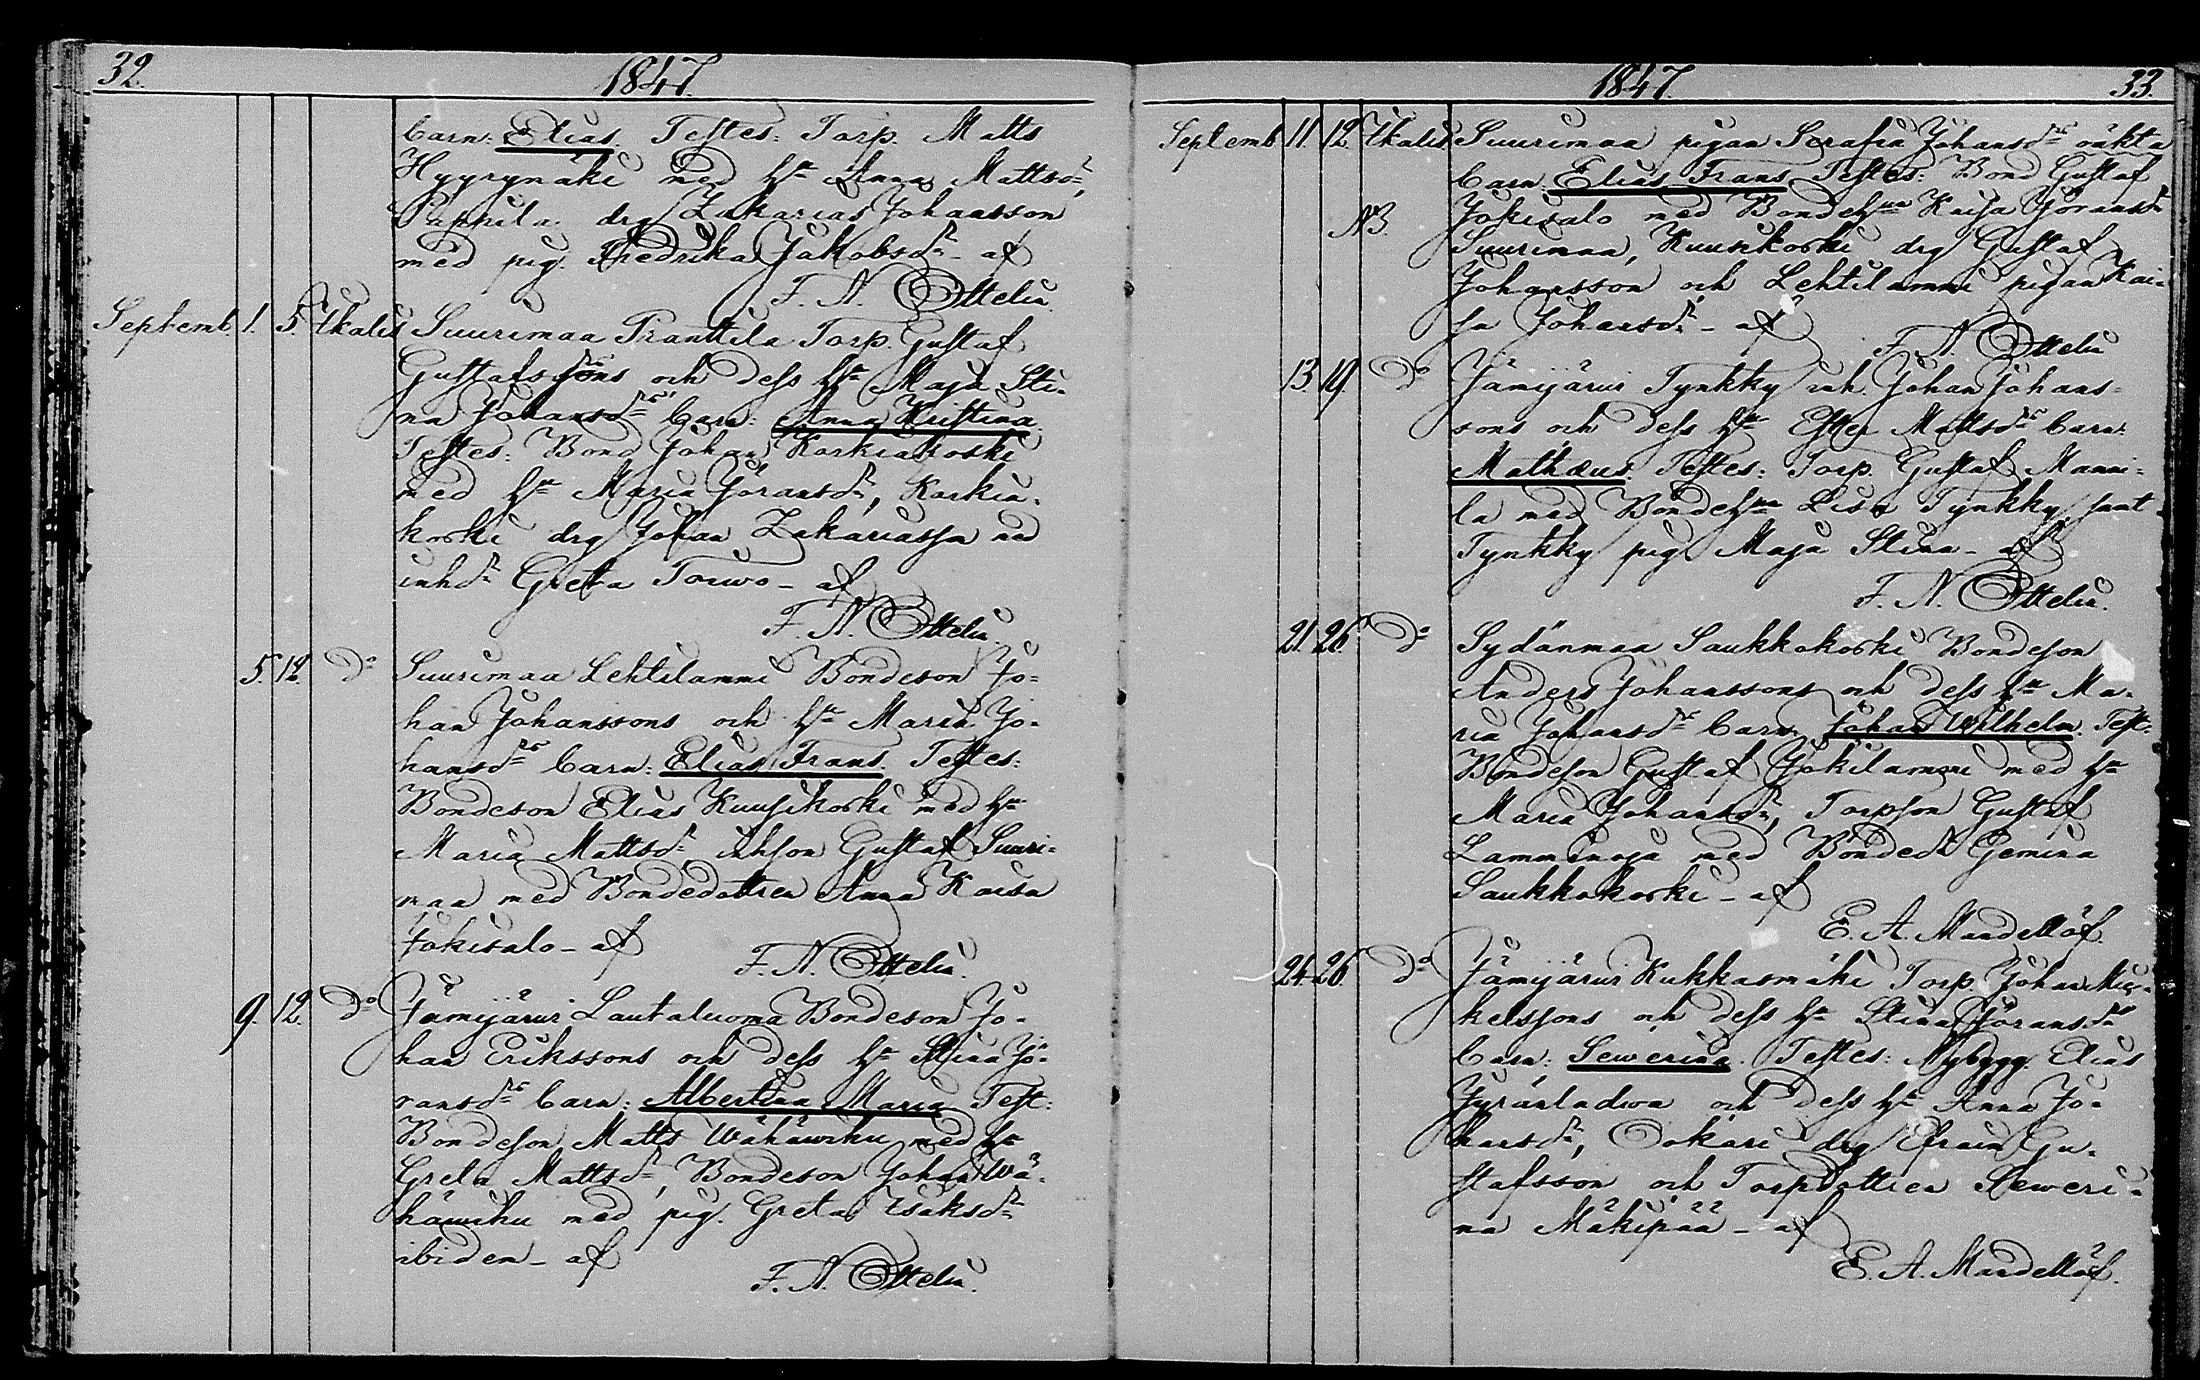 32. 1847.
barn: Elias. Testes: Torp. Matts
Hyyrynmäki med hu Anna Mattsdr,
Pappila drg Zakarias Johansson
med pig. Fredrika Jakobsdr - af
F. N. Ottelin.
Septemb. 1. 5. Ikalis Suurimaa Pranttila Torp. Gustaf
Gustafssons och dess hu Maja Sti-
na Johansdrs barn: Anna Kristina.
Testes: Bond Johan Karkiakoski
med hu Maria Göransdr, Karkia-
koski drg Johan Zakariasson med
inhdr Greta Toiwo - af
F. N. Ottelin.
5. 12. Do Suurimaa Lehtilammi Bondeson Jo-
han Johanssons och hu Maria Jo-
hansdrs barn: Elias Frans. Testes:
Bondeson Elias Kuusikoski med hu
Maria Mattsdr, inhson Gustaf Suuri-
maa med Bondedottren Anna Kaisa
Jokisalo - af
F. N. Ottelin.
9. 12. Do Jämijärwi Lautaluoma Bondeson Jo-
han Erikssons och dess hu Stina Jö-
ransdrs barn: Albertina Maria Test:
Bondeson Matts Wähäwihu med hu
Greta Mattsdr, Bondeson Johan Wä-
häwihu med pig. Greta Isaksdr
ibidem - af
F. N. Ottelin.
1847. 33.
Septemb 11. 12. Ikalis Suurimaa pigan Serafia Johansdrs oäkta
barn: Elias Frans. Testes: Bond Gustaf
N3. Jokisalo med Bondehun Kaisa Göransdr
Suurimaa, Kuusikoski drg Gustaf
Johansson och Lehtilammi pigan Kai-
sa Johansdr - af
F. N. Ottelin
13. 19. Do Jämijärwi Tynkky inh. Johan Johans-
sons och dess hu Ester Mattsdrs barn:
Mathæus. Testes: Torp. Gustaf Manni-
la med Bondehun Lisa Tynkky samt
Tynkky pig. Maja Stina - af
F. N. Ottelin.
21. 26. Do Sydänmaa Saukkokoski Bondeson
Anders Johanssons och dess hu Ma-
ria Johansdrs barn: Johan Wilhelm. Test:
Bondeson Gustaf Jokilammi med hu
Maria Johansdr, Torpson Gustaf
Lamminoja med Bondedr Gemina
Saukkokoski - af
E. A. Mandellöf.
24. 26. Do Jämijärwi Kukkasmäki Torp. Johan Mic-
kelssons och dess hu Stina Göransdrs
barn: Sewerina. Testes: Nybygg. Elias
Jyränladwa och dess hu Anna Jo-
hansdr, Ookari drg Efraim Gu-
stafsson och Torpdottren Seweri-
na Mäkipää - af
E. A. Mandellöf.